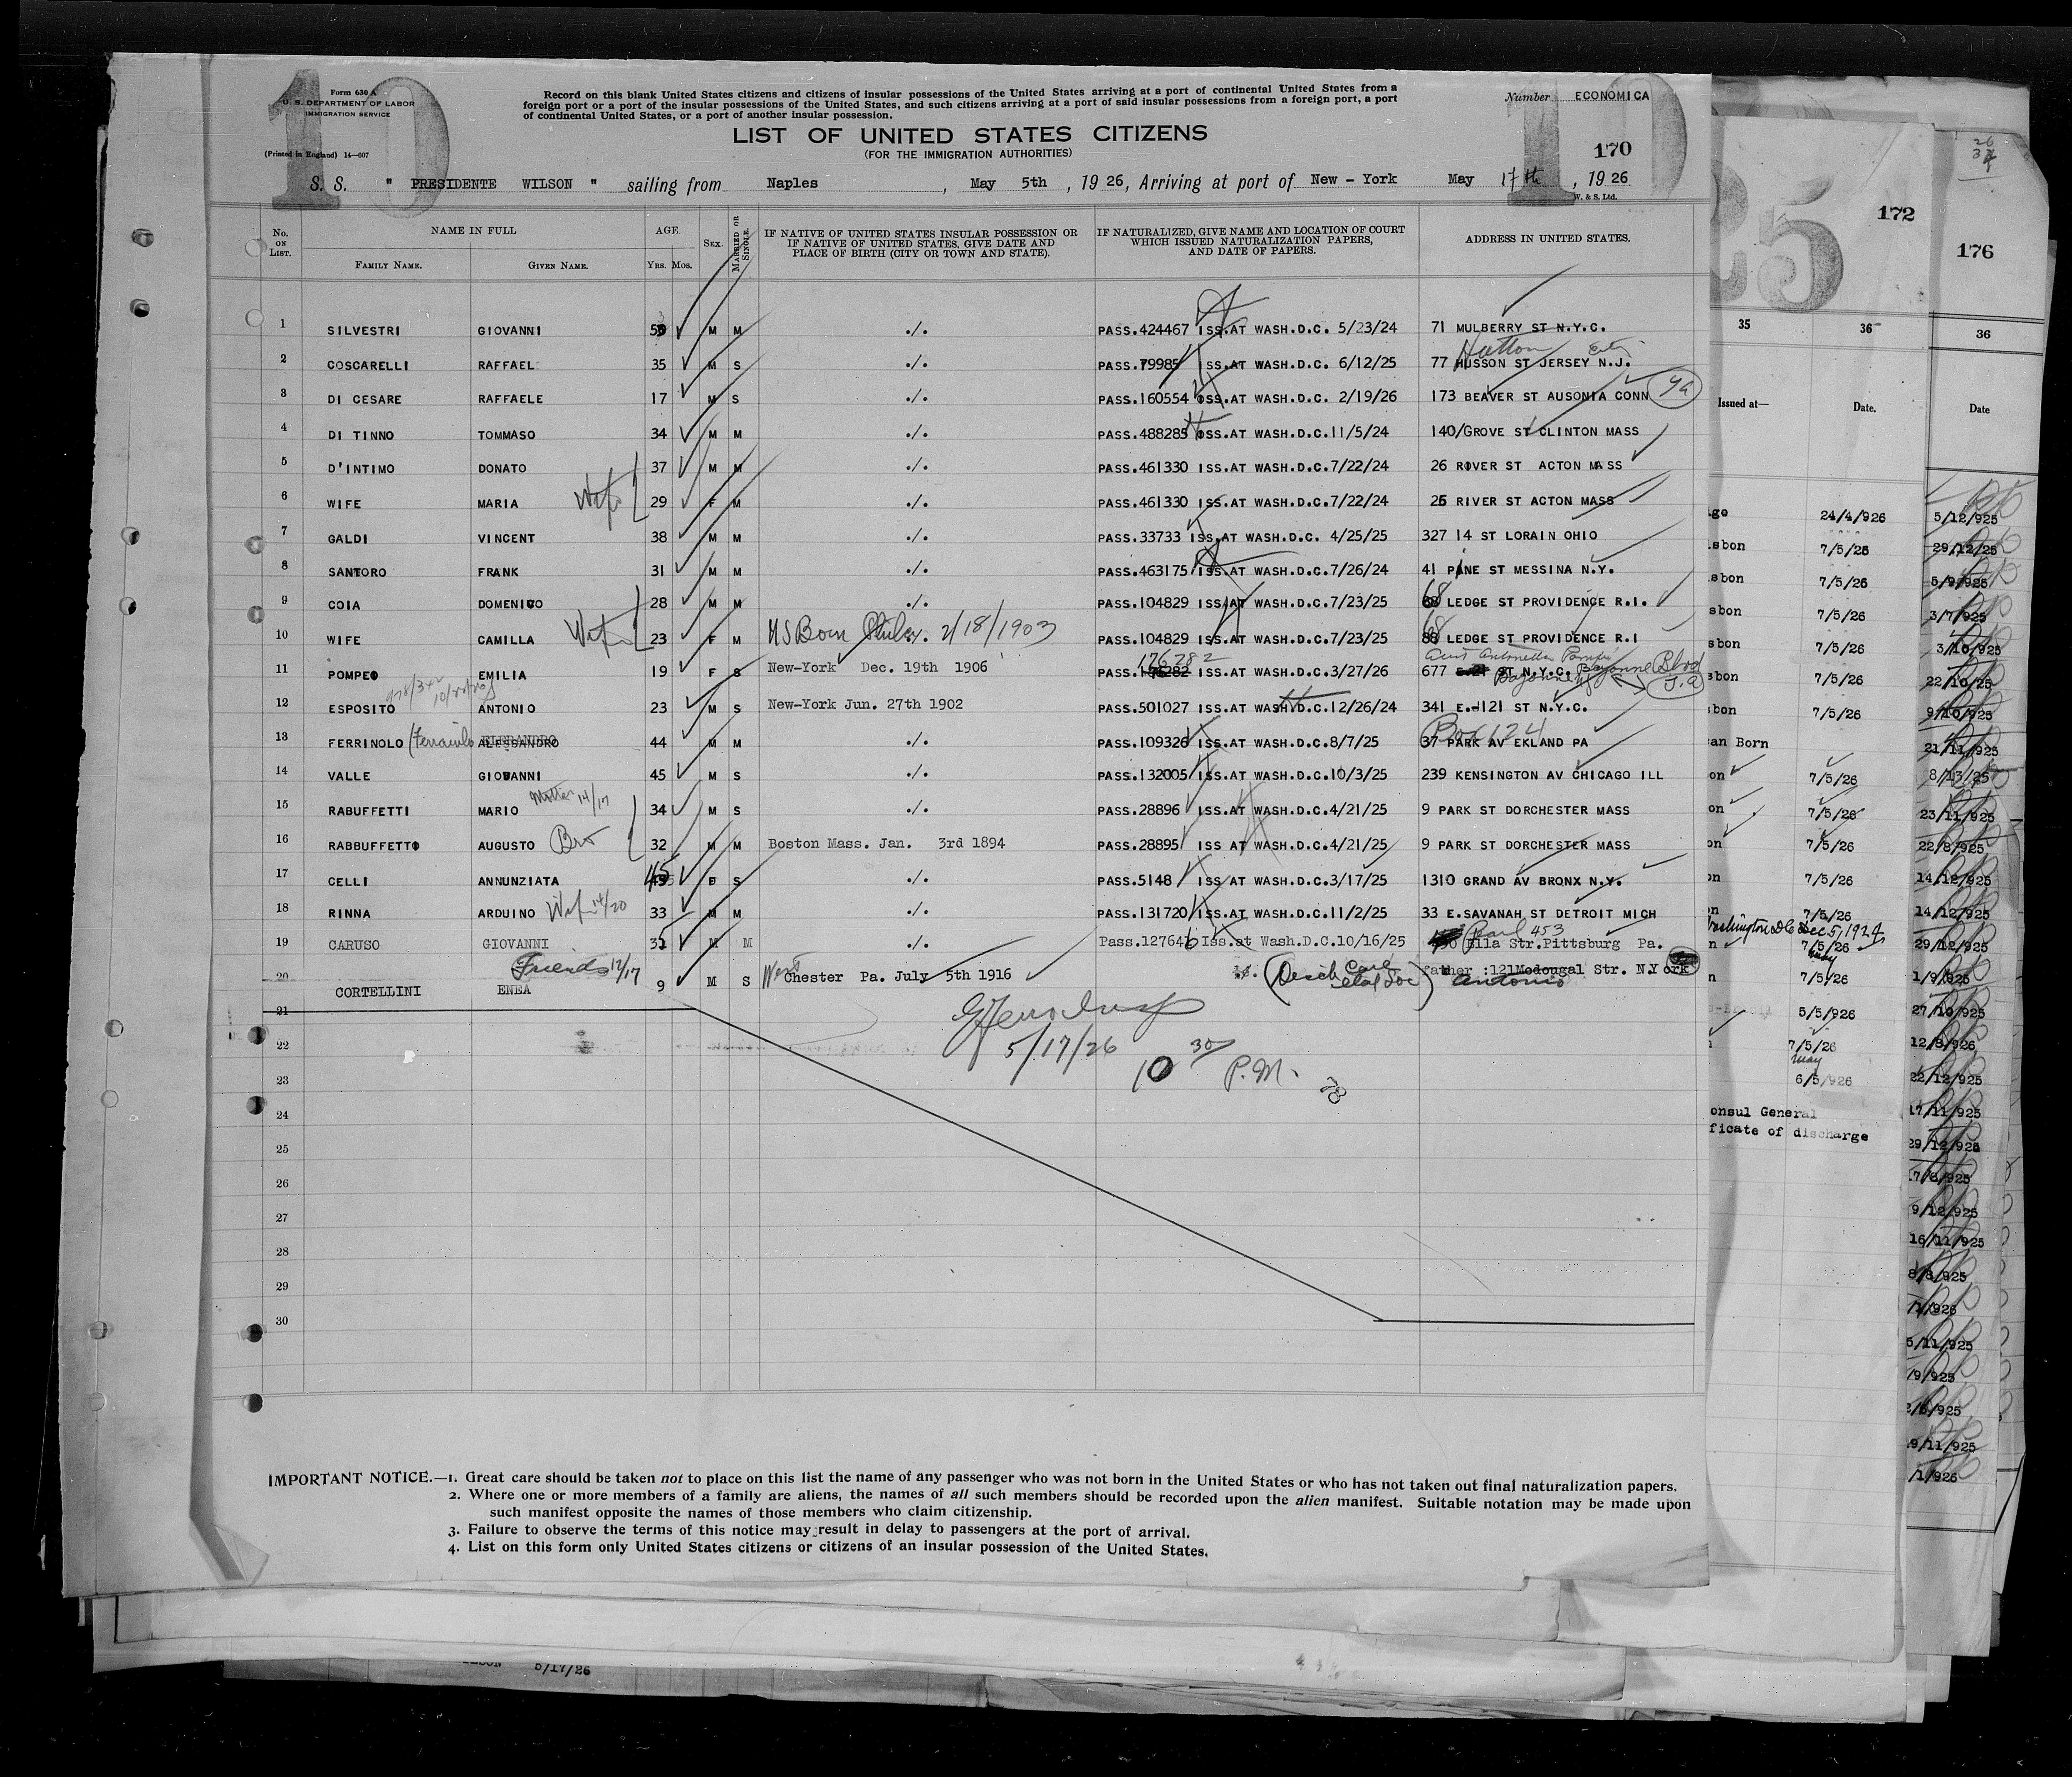 10
10
Form 630 A
U. S. DEPARTMENT OF LABOR
IMMIGRATION SERVICE
(Printed in England) 14—607
Record on this blank United States citizens and citizens of insular possessions of the United States arriving at a port of continental United States from a
foreign port or a port of the insular possessions of the United States, and such citizens arriving at a port of said insular possessions from a foreign port, a port
of continental United States, or a port of another insular possession.
Number ECONOMICA
LIST OF UNITED STATES CITIZENS
(FOR THE IMMIGRATION AUTHORITIES)
170
S. S. " PRESIDENTE WILSON " sailing from Naples, May 5th, 19 26, Arriving at port of New - York May 17th, 19 26
W. & S. Ltd.
No. ON LIST. NAME IN FULL AGE. SEX. MARRIED OR SINGLE. IF NATIVE OF UNITED STATES INSULAR POSSESSION OR IF NATIVE OF UNITED STATES, GIVE DATE AND PLACE OF BIRTH (CITY OR TOWN AND STATE). IF NATURALIZED, GIVE NAME AND LOCATION OF COURT WHICH ISSUED NATURALIZATION PAPERS, AND DATE OF PAPERS. ADDRESS IN UNITED STATES.
FAMILY NAME. GIVEN NAME. YRS. MOS.
1 SILVESTRI GIOVANNI M M ./. PASS.424467 ISS.AT WASH.D.C. 5/23/24 71 MULBERRY ST N.Y.C.
2 COSCARELLI RAFFAEL 35 M S ./. PASS.79985 ISS.AT WASH.D.C. 6/12/25 77 HUSSON ST JERSEY N.J.
Hutton City
3 DI CESARE RAFFAELE 17 M S ./. PASS.160554 ISS.AT WASH.D.C. 2/19/26 173 BEAVER ST AUSONIA CONN
4 DI TINNO TOMMASO 34 M M ./. PASS.488285 ISS.AT WASH.D.C.11/5/24 140/GROVE ST CLINTON MASS
5 D'INTIMO DONATO 37 M M ./. PASS.461330 ISS.AT WASH.D.C.7/22/24 26 RIVER ST ACTON MASS
6 WIFE MARIA Wife 29 F M ./. PASS.461330 ISS.AT WASH.D.C.7/22/24 26 RIVER ST ACTON MASS
7 GALDI VINCENT 38 M M ./. PASS.33733 ISS.AT WASH.D.C. 4/25/25 327 14 ST LORAIN OHIO
8 SANTORO FRANK 31 M M ./. PASS.463175 ISS.AT WASH.D.C.7/26/24 41 PINE ST MESSINA N.Y.
9 COIA DOMENICO 28 M M ./. PASS.104829 ISS.AT WASH.D.C.7/23/25 68 LEDGE ST PROVIDENCE R.I.
10 WIFE CAMILLA Wife 23 F M US Born Phila. 2/18/1903 PASS.104829 ISS.AT WASH.D.C.7/23/25 68 LEDGE ST PROVIDENCE R.I
11 POMPEO EMILIA 19 F S New-York Dec. 19th 1906 176282 PASS. ISS.AT WASH.D.C.3/27/26 677 ST N.Y.C. Bayonne Blvd
aunt Antonetta Pompei
12 ESPOSITO ANTONIO 23 M S New-York Jun. 27th 1902 PASS.501027 ISS.AT WASH.D.C.12/26/24 341 E.-121 ST N.Y.C.
13 FERRINOLO (Ferraiuolo ALESSANDRO 44 M M ./. PASS.109326 ISS.AT WASH.D.C.8/7/25 37 PARK AV EKLAND PA
Box 124
14 VALLE GIOVANNI 45 M S ./. PASS.132005 ISS.AT WASH.D.C.10/3/25 239 KENSINGTON AV CHICAGO ILL
15 RABUFFETTI MARIO Mother 14/17 34 M S ./. PASS.28896 ISS.AT WASH.D.C.4/21/25 9 PARK ST DORCHESTER MASS
16 RABBUFFETTO AUGUSTO Bro 32 M M Boston Mass. Jan. 3rd 1894 PASS.28895 ISS AT WASH.D.C.4/21/25 9 PARK ST DORCHESTER MASS
17 CELLI ANNUNZIATA 45 S ./. PASS.5148 ISS AT WASH.D.C.3/17/25 1310 GRAND AV BRONX N.Y.
18 RINNA ARDUINO Wife 14/20 33 M M ./. PASS.131720 ISS.AT WASH.D.C.11/2/25 33 E.SAVANAH ST DETROIT MICH
19 CARUSO GIOVANNI M M ./. Pass.127646 Iss.at Wash.D.C.10/16/25 Ella Str.Pittsburg Pa.
Pearl 453
20 CORTELLINI ENEA Friends 12/17 9 M S West Chester Pa. July 5th 1916 father :121Mcdougal Str. N.York
Antonio
21
22
5/17/26
23 10 30 P.M.
24
25
26
27
28
29
30
IMPORTANT NOTICE.—1. Great care should be taken not to place on this list the name of any passenger who was not born in the United States or who has not taken out final naturalization papers.
2. Where one or more members of a family are aliens, the names of all such members should be recorded upon the alien manifest. Suitable notation may be made upon
such manifest opposite the names of those members who claim citizenship.
3. Failure to observe the terms of this notice may result in delay to passengers at the port of arrival.
4. List on this form only United States citizens or citizens of an insular possession of the United States.
5/17/26
25
172
35 36
Issued at— Date.
24/4/926
7/5/26
7/5/26
7/5/26
7/5/26
7/5/26
7/5/26
Born
7/5/26
7/5/26
7/5/26
7/5/26
7/5/26
Washington DC Dec 5, 1924
7/5/26
May
7/5/26
5/5/926
7/5/26
May
6/5/926
onsul General
ficate of discharge
176
36
Date
5/12/925
29/12/25
5/9/925
3/7/925
3/10/925
22/10/25
9/10/925
21/11/925
8/13/25
23/11/925
22/8/925
14/12/925
14/12/925
29/12/925
1/9/925
27/10/925
12/8/926
22/12/925
17/11/925
29/12/925
7/8/925
9/12/925
16/11/925
8/8/925
/1/926
5/11/925
/9/925
2/6/925
9/11/925
/1/926